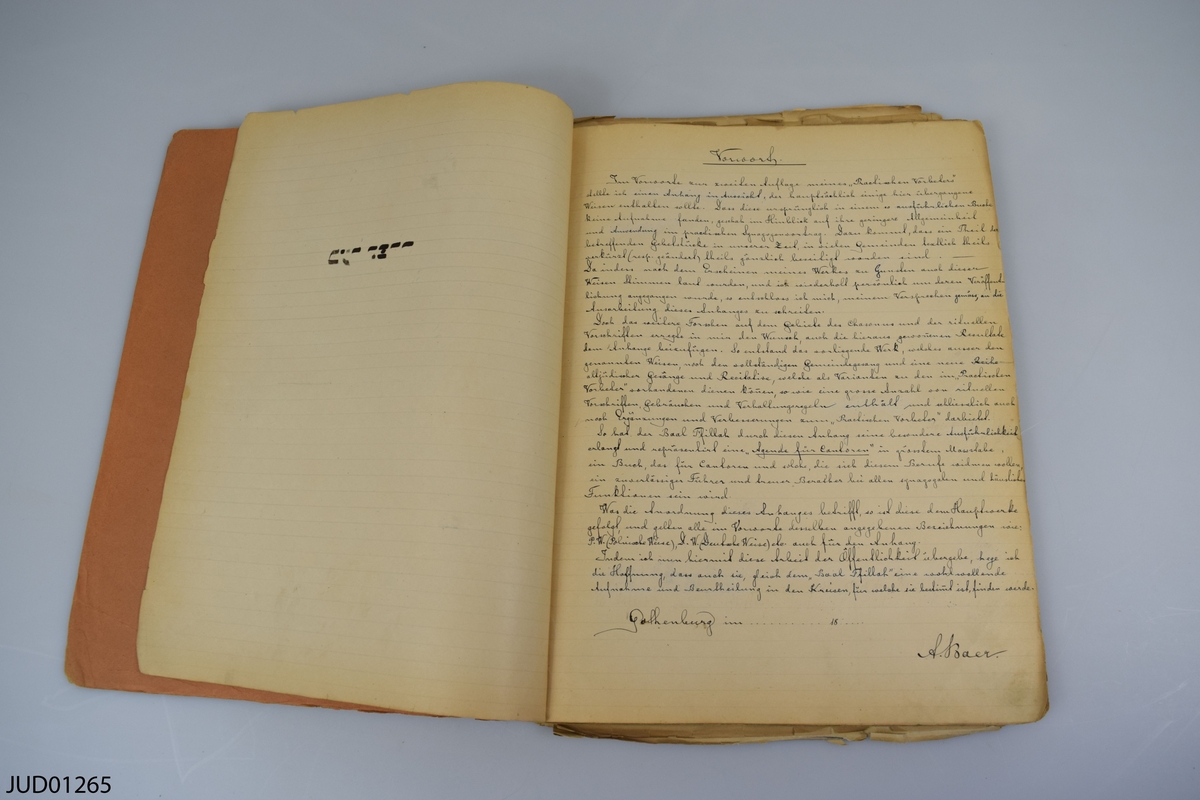 Vorwort.
Im Vorworte zur zweiten Auflage meines „Practischen Vorbeters"
stellte ich einen Anhang in Aussicht, der hauptsächlich einige hier übergangene
Weisen enthalten sollte. Das diese ursprünglich in einem so ausführlichen Buche
keine Aufnahme fanden, geschah im Hinblick auf ihre geringere Allgemeinheit
und Anwendung im practischen Synagogenvortrag. Dazu kommt, dass ein Theil der
betreffenden Gebetstücke in unserer Zeit, in vielen Gemeinden theils
gekürzt (resp. geändert) theils gänzlich beseitigt worden sind. —
Da indess nach dem Erscheinen meines Werkes zu Gunsten auch dieser
Weisen Stimmen laut wurden, und ich wiederholt persönlich um deren Veröffent-
lichung angegangen wurde, so entschloss ich mich, meinem Versprechen gemäss, an die
Ausarbeitung dieses Anhanges zu schreiten.
Doch das weitere Forschen auf dem Gebiete des Chasonus und der rituellen
Vorschriften erregte in mir den Wunsch, auch die hieraus gewonnenen Resultate
dem Anhange beizufügen. So entstand das vorliegende Werk, welches ausser den
genannten Weisen, noch den vollständigen Gemeindegesang und eine neue Reihe
altjüdischer Gesänge und Recitative, welche als Varianten zu den im „Practischen
Vorbeter" vorhandenen dienen können, so wie eine grosse Anzahl von rituellen
Vorschriften, Gebräuchen und Verhaltungsregeln enthält und schliesslich auch
noch Ergänzungen und Verbesserungen zum „Practischen Vorbeter" darbietet.
So hat der Baal T'fillah durch diesen Anhang seine besondere Ausführlichkeit
erlangt und repräsentirt eine „Agende für Cantoren" in grösstem Massstabe,
ein Buch, das für Cantoren und solche, die sich diesem Berufe widmen wollen,
ein zuverlässiger Führer und treuer Berather bei allen synagogalen und häuslichen
Funktionen sein wird.
Was die Anordnung dieses Anhanges betrifft, so ist diese dem Hauptwerke
gefolgt, und gelten alle im Vorworte desselben angegebenen Bezeichnungen wie:
P.W. (Polnische Weise), D.W. (Deutsche Weise) etc auch für den Anhang.
Indem ich nun hiermit diese Arbeit der Öffentlichkeit übergebe, hege ich
die Hoffnung, dass auch sie, gleich dem „Baal T'fillah" eine wohlwollende
Aufnahme und Beurtheilung in den Kreisen, für welche sie bestimmt ist, finden werde.
Gothenburg im .......... 18 ....
A. Baer.
JUD01265